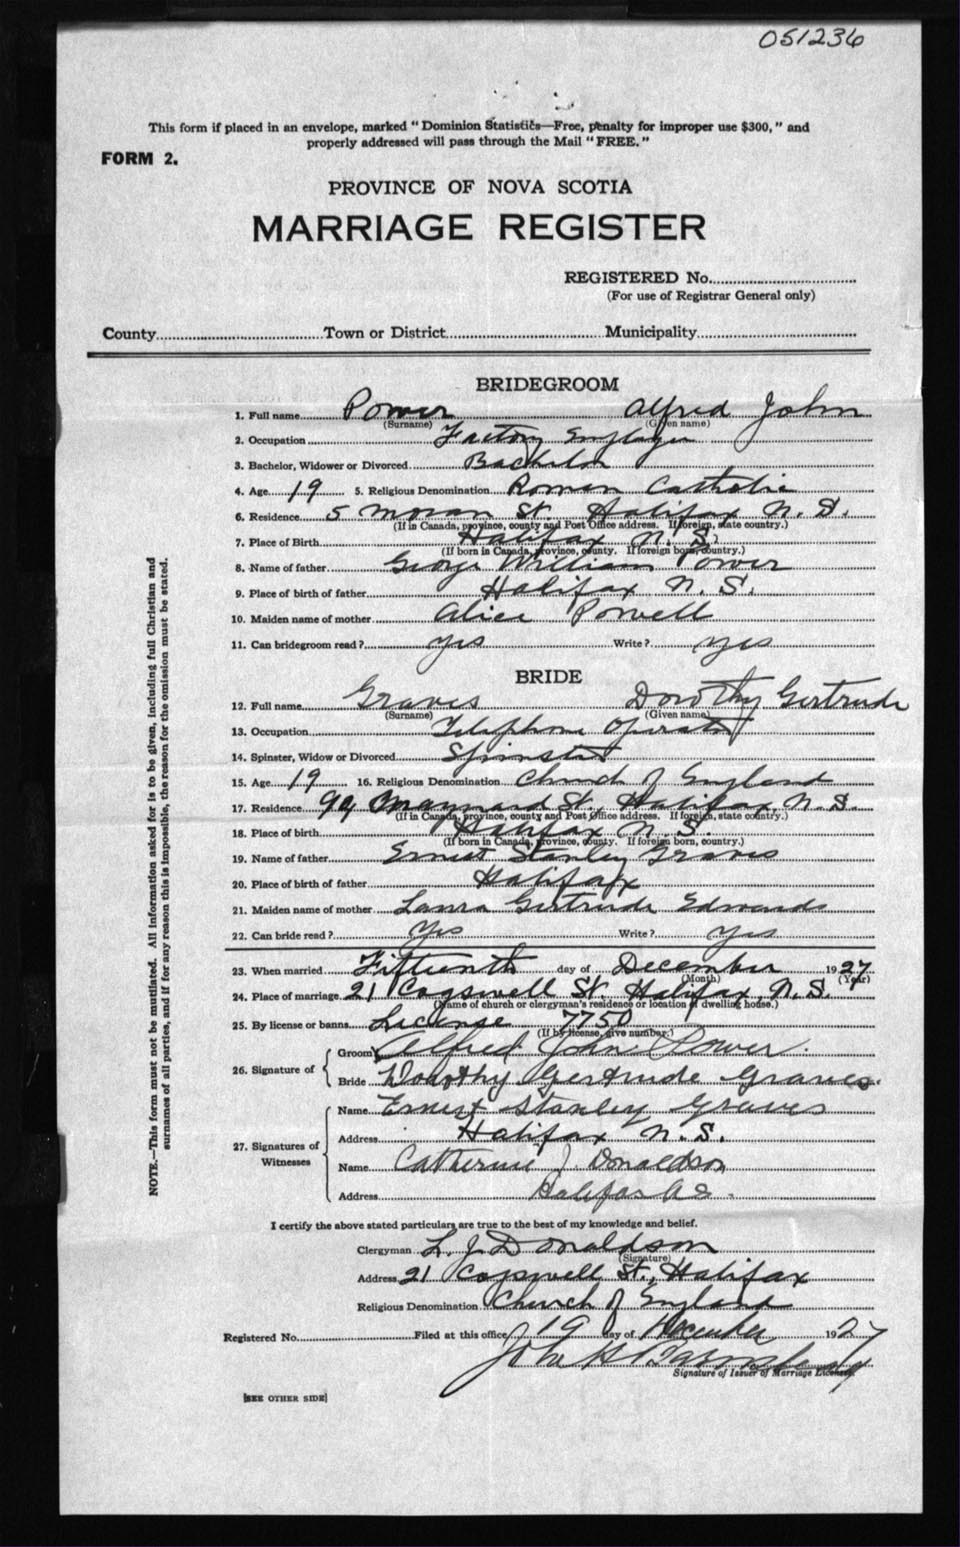 051236
This form if placed in an envelope, marked "Dominion Statistics—Free, penalty for improper use $300," and
properly addressed will pass through the Mail "FREE."
FORM 2.
PROVINCE OF NOVA SCOTIA
MARRIAGE REGISTER
REGISTERED No.
(For use of Registrar General only)
County Town or District Municipality
BRIDEGROOM
1. Full name Power Alfred John
(Surname) (Given name)
2. Occupation Factory Employee
3. Bachelor, Widower or Divorced Bachelor
4. Age 19 5. Religious Denomination Roman Catholic
6. Residence 5 Moran St. Halifax N. S.
(If in Canada, province, county and Post Office address. If foreign, state country.)
7. Place of Birth Halifax N. S.
(If born in Canada, province, county. If foreign born, country.)
8. Name of father George William Power
9. Place of birth of father Halifax N. S.
10. Maiden name of mother Alice Powell
11. Can bridegroom read? Yes Write? Yes
BRIDE
12. Full name Graves Dorothy Gertrude
(Surname) (Given name)
13. Occupation Telephone Operator
14. Spinster, Widow or Divorced Spinster
15. Age 19 16. Religious Denomination Church of England
17. Residence 99 Maynard St., Halifax, N. S.
(If in Canada, province, county and Post Office address. If foreign, state country.)
18. Place of birth Halifax N. S.
(If born in Canada, province, county. If foreign born, country.)
19. Name of father Ernest Stanley Graves
20. Place of birth of father Halifax
21. Maiden name of mother Laura Gertrude Edwards
22. Can bride read? Yes Write? Yes
23. When married Fifteenth day of December 1927
(Month) (Year)
24. Place of marriage 21 Cogswell St. Halifax, N. S.
(Name of church or clergyman's residence or location of dwelling house.)
25. By license or banns License 7750
(If by license, give number.)
26. Signature of
Groom Alfred John Power.
Bride Dorothy Gertrude Graves.
27. Signatures of Witnesses
Name Ernest Stanley Graves
Address Halifax N. S.
Name Catherine J Donaldson
Address Halifax N S.
I certify the above stated particulars are true to the best of my knowledge and belief.
Clergyman L. J. Donaldson
(Signature)
Address 21 Cogswell St., Halifax
Religious Denomination Church of England
Registered No. Filed at this office 19 day of December 1927
John H
Signature of Issuer of Marriage Licenses.
[SEE OTHER SIDE]
NOTE.—This form must not be mutilated. All information asked for is to be given, including full Christian and
surnames of all parties, and if for any reason this is impossible, the reason for the omission must be stated.